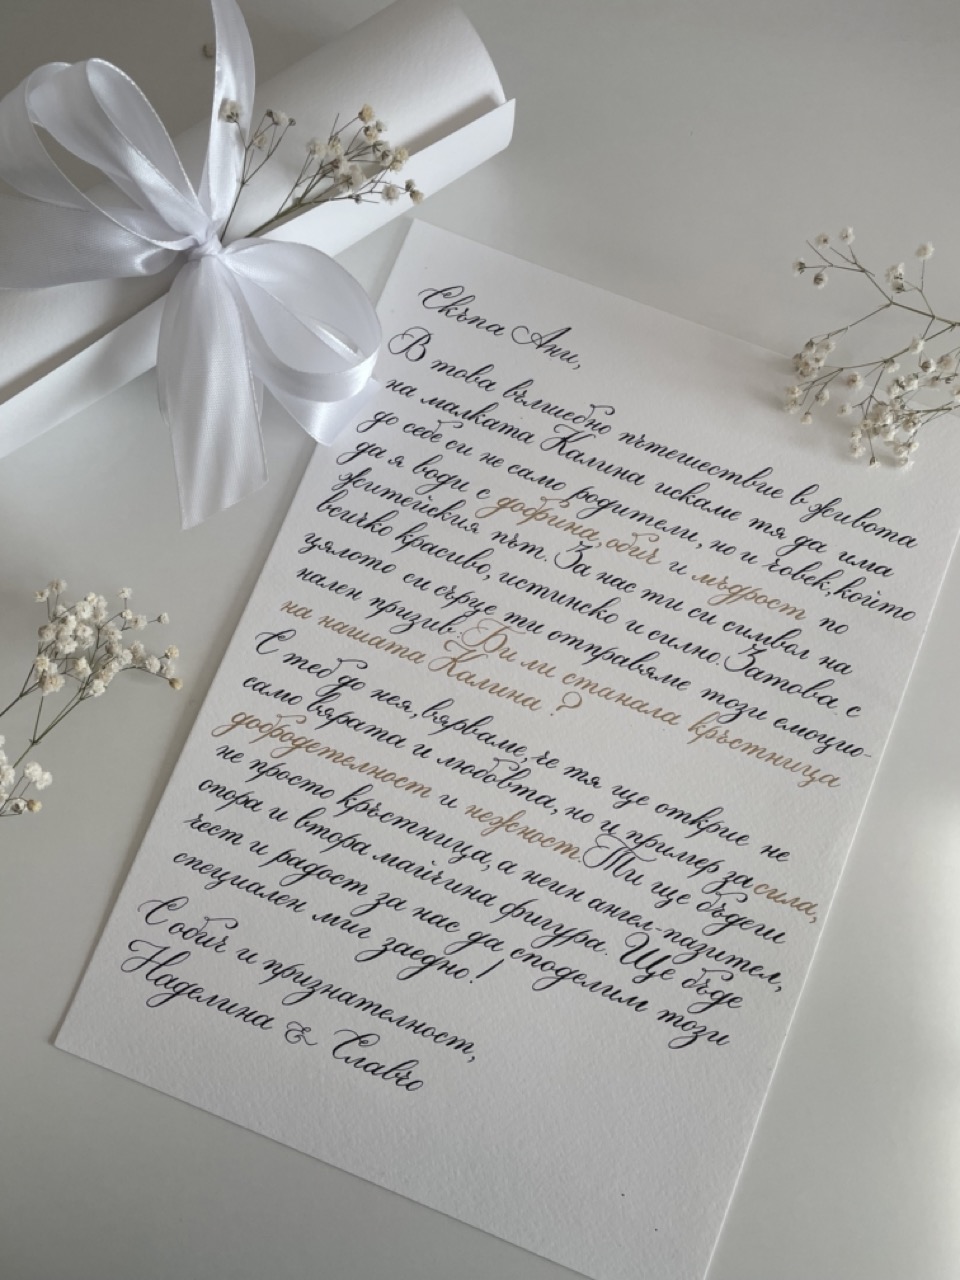 Скъпа Ани,
В това вълшебно пътешествие в живота
на малката Калина искаме тя да има
до себе си не само родители, но и човек, който
да я води с добрина, обич и мъдрост по
житейския път. За нас ти си символ на
всичко красиво, истинско и силно. Затова с
цялото си сърце ти отправяме този емоцио-
нален призив: Би ли станала кръстница
на нашата Калина?
С теб до нея, вярваме, че тя ще открие не
само вярата и любовта, но и пример за сила,
добродетелност и нежност. Ти ще бъдеш
не просто кръстница, а неин ангел-пазител,
опора и втора майчина фигура. Ще бъде
чест и радост за нас да споделим този
специален миг заедно!
С обич и признателност,
Наделина & Славчо